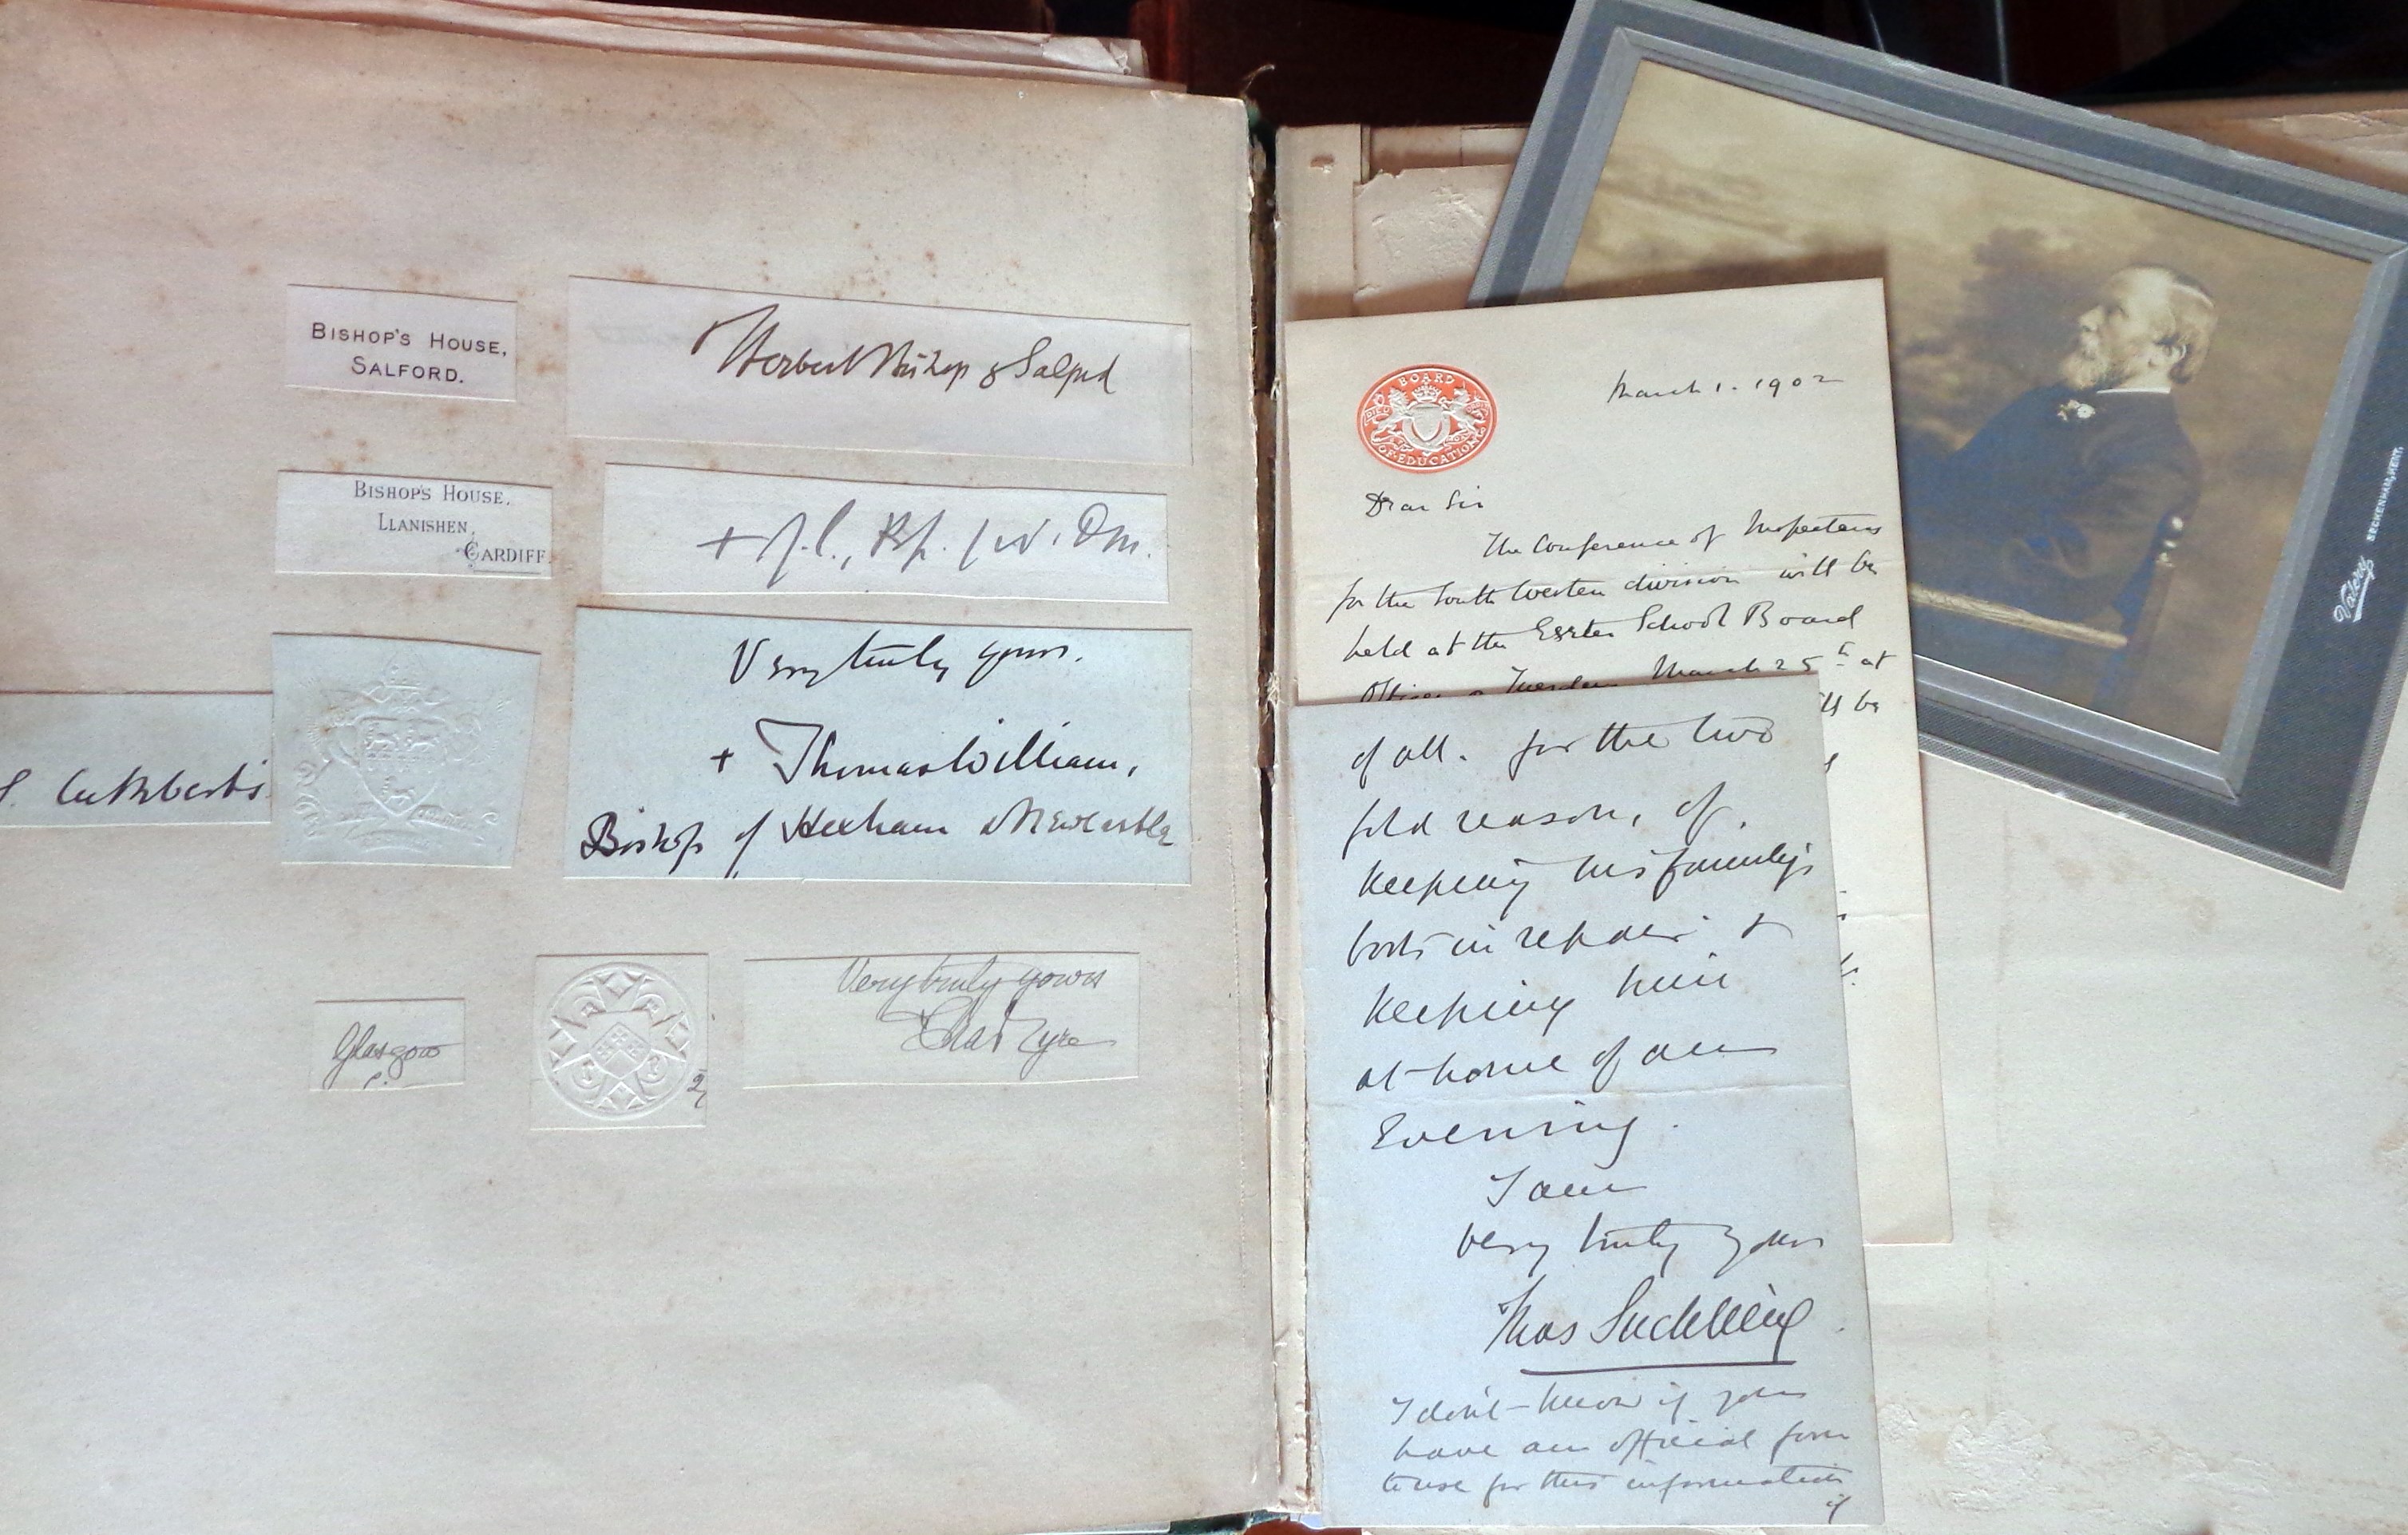 BISHOP'S HOUSE,
SALFORD.
Herbert Bishop of Salford
BISHOP'S HOUSE,
LLANISHEN,
CARDIFF.
Cuthbert's
Very truly yours.
+ Thomas William,
Bishop of Hexham & Newcastle
Glasgow
Very truly yours
BOARD
OF EDUCATION
March 1. 1902
Dear Sir
The Conference of Inspectors
for the South Western division will be
held at the Exeter School Board
Offices on Tuesday March 25th at
be
of all. for the two
fold reason, of
keeping his family's
boots in repair &
keeping him
at home of an
Evening.
I am
very truly yours
Thos Suckling
I don't know if you
have an official form
to use for this information
if
Valery
BECKENHAM, KENT.